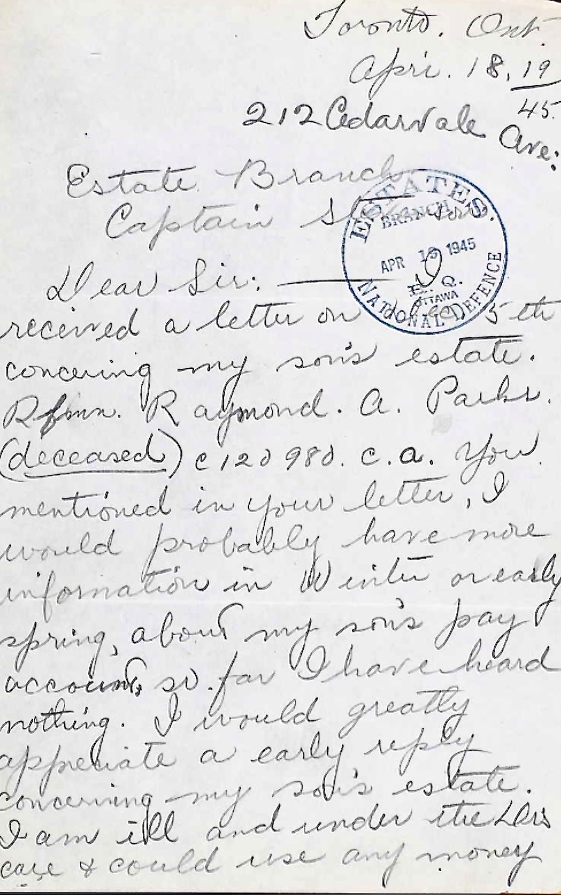 Toronto. Ont.
Apri. 18, 19
45.
212 Cedarvale Ave:
Estate Branch
Captain
ESTATES
BRANCH
APR 19 1945
H. Q.
OTTAWA
NATIONAL DEFENCE
Dear Sir: — I
received a letter on 5th
concering my son's estate.
Rfmn. Raymond. A. Parks.
(deceased) c120980. C.A. You
mentioned in your letter, I
would probably have more
information in Winter or early
spring, about my son's pay
account, so far I have heard
nothing. I would greatly
appreciate a early reply
concerning my son's estate.
I am ill and under the Drs
care & could use any money